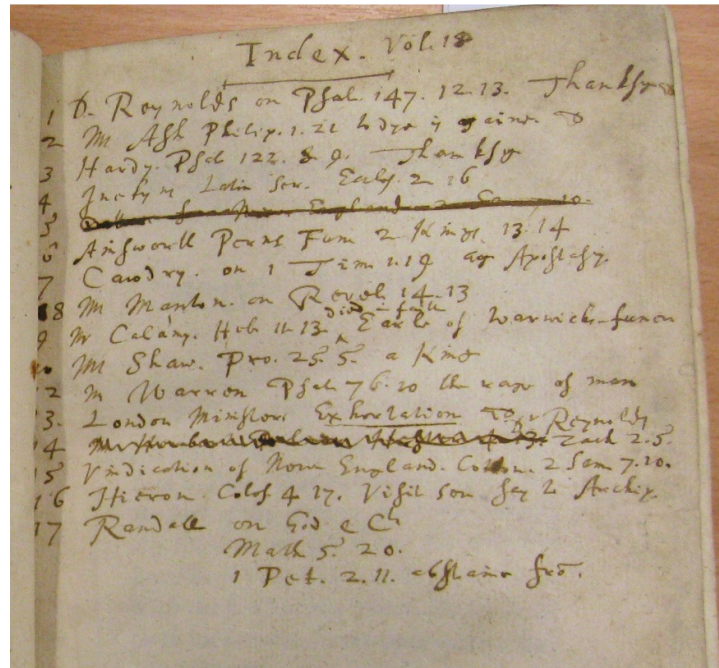 Index. Vol. 18
1 D. Reynolds on Psal. 147. 12. 13. Thanksg
2 Mr Ash Philip. 1. 21 to dye is gaine.
3 Hardy. Psal 122. 8 9. Thanksg
4 Latin ser. Eccles. 2 16
5 New England 2 Sam 7 10.
6 Ainsworth Perns Fun 2 Kings. 13. 14
7 Cawdry. on 1 Tim 1. 19 ag Apostasy.
8 Mr Manton. on Revel. 14. 13
died in faith
9 Mr Calamy. Heb 11. 13. Earle of Warwicks funer
Mr Shaw. Pro. 25. 5. a King
12 Mr Warren Psal 76. 10 the rage of man
13. London Ministers Exhortation To Dr Reynolds
14 Zach 2. 5.
15 Vindication of New England. Cotton. 2 Sam. 7. 10.
16 Hieron. Colos 4 17. Visit ser say to Archip.
17 Randall on God & Ch
Math 5. 20.
1 Pet. 2. 11. abstaine frō.